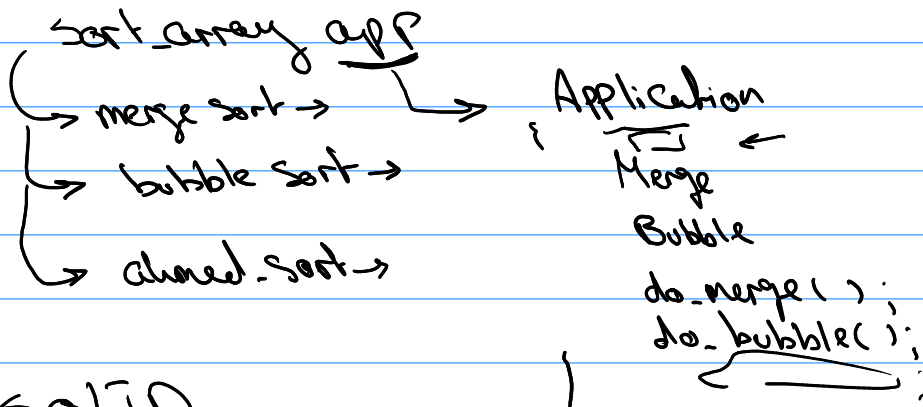 sort_array app
merge sort →
bubble sort →
ahmed_sort →
Application
{
[ ] ←
Merge
Bubble
do_merge( );
do_bubble( );
SOLID